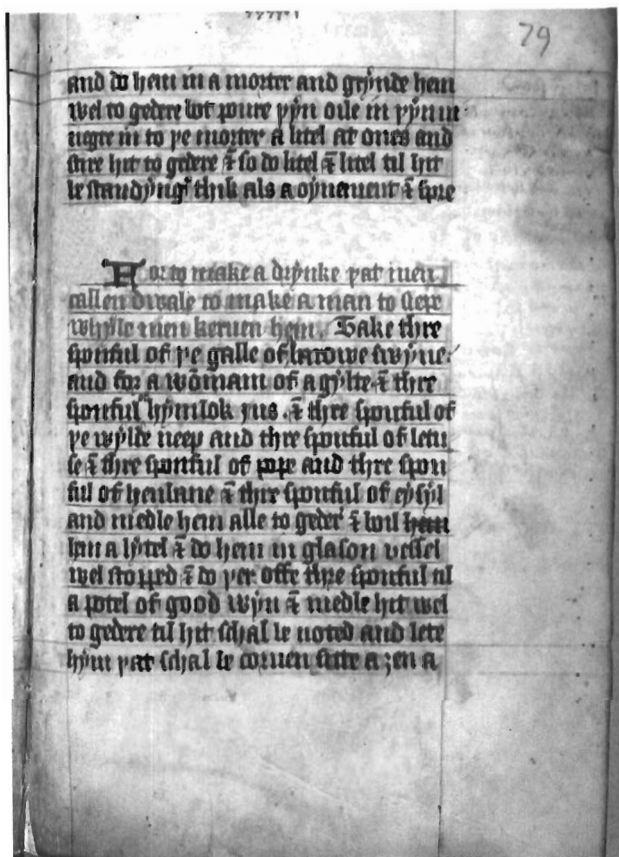 79
and do hem in a morter and grȳnde hem
wel to gedere bot poure þȳn oile in þȳ vin
negre in to þe morter a litel at ones and
stire hit to gedere & so do litel & litel til hit
be standȳng thik als a oȳnement &
For to make a drȳnke þat men
callen dwale to make a man to slepe
whȳle men keruen hem. Take thre
sponful of þe galle of barowe swȳne
and for a wōmam of a gȳlte & thre
sponful hȳmlok jus . & thre sponful of
þe wȳlde neep and thre sponful of letu
se & thre sponful of pope and thre spon
ful of henbane & thre sponful of eȳsȳl
and medle hem alle to geder & boil hem
hem a lȳtel & do hem in glason vessel
wel stopped & do þer offe thre sponful til
a potel of good wȳn & medle hit wel
to gedere til hit schal be noted and lete
hȳm þat schal be coruen sitte a ȝen a